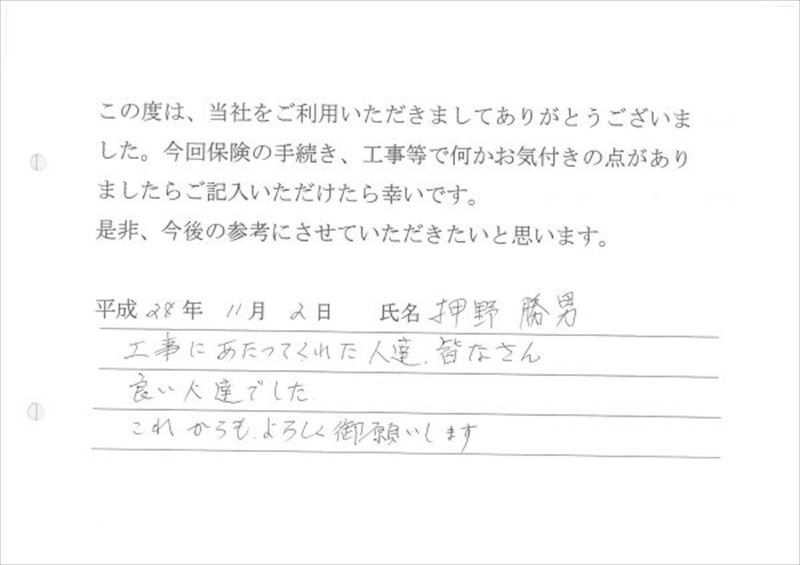 この度は、当社をご利用いただきましてありがとうございま
した。今回保険の手続き、工事等で何かお気付きの点があり
ましたらご記入いただけたら幸いです。
是非、今後の参考にさせていただきたいと思います。
平成 28 年 11 月 2 日 氏名 押野 勝男
工事にあたってくれた人達、皆なさん
良い人達でした
これからも、よろしく御願いします